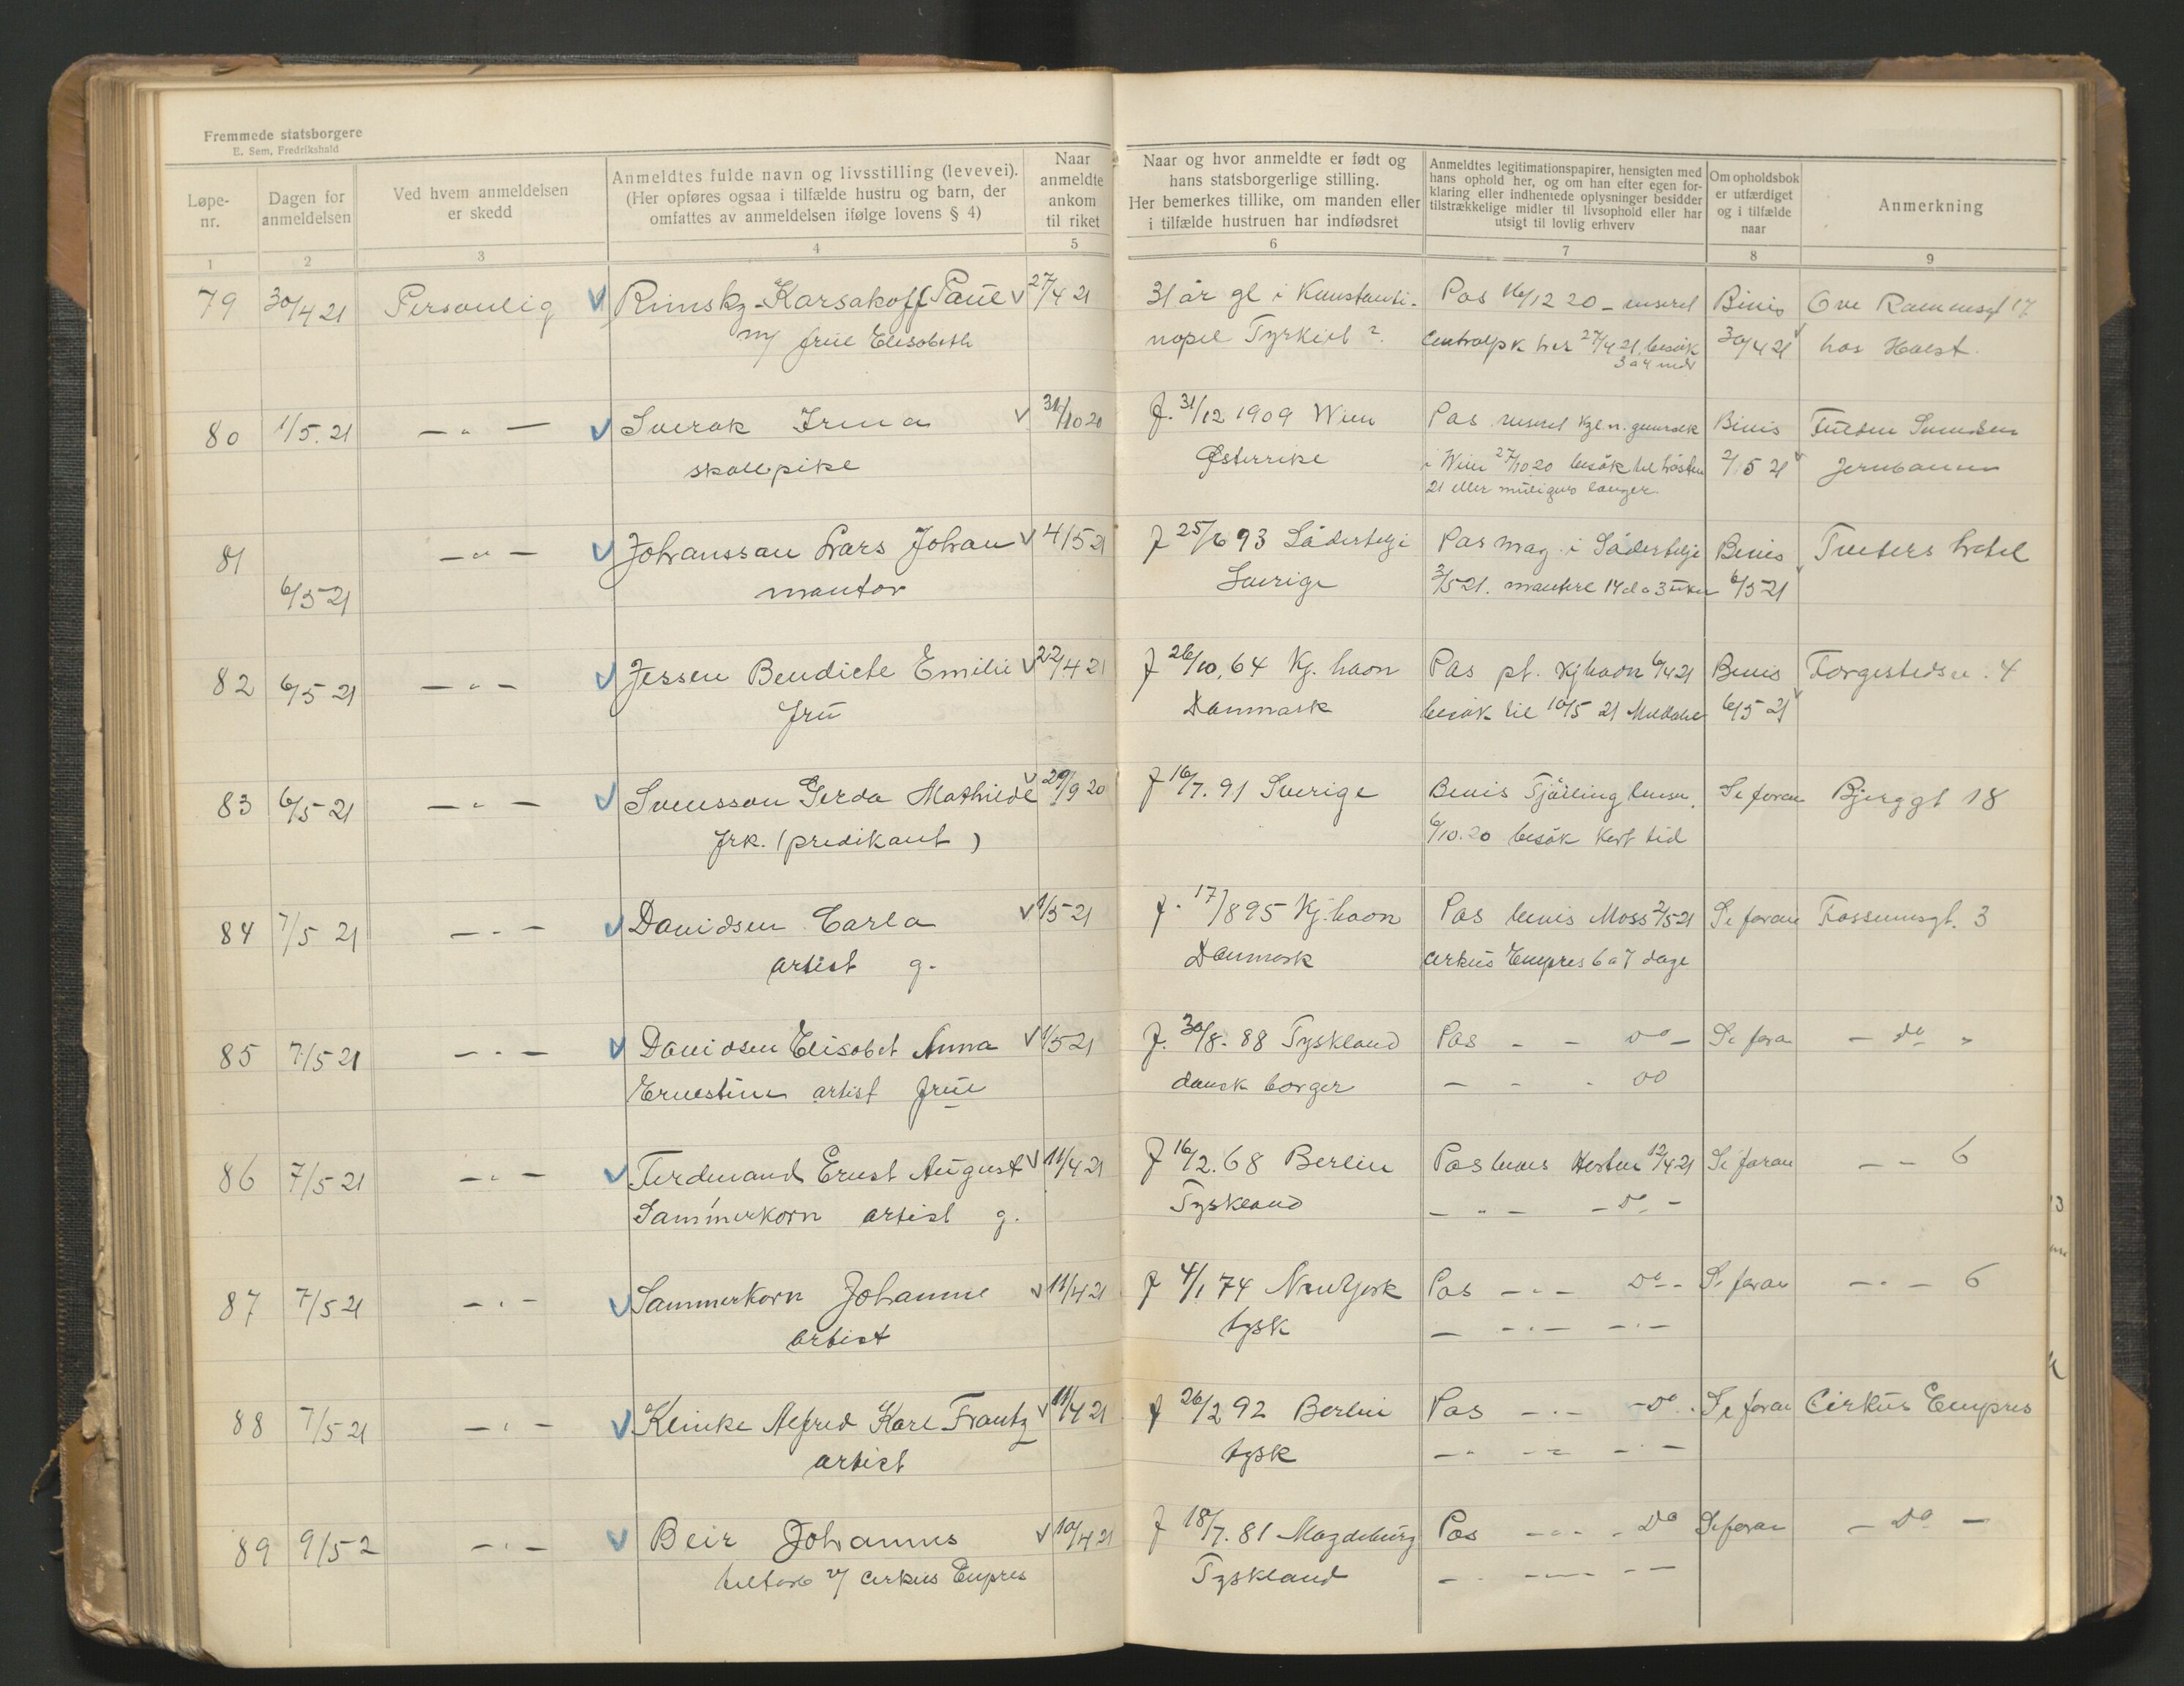 Fremmede statsborgere
E. Sem, Fredrikshald
Løpe-nr.
Dagen for anmeldelsen
Ved hvem anmeldelsen er skedd
Anmeldtes fulde navn og livsstilling (levevei).
(Her opføres ogsaa i tilfælde hustru og barn, der
omfattes av anmeldelsen ifølge lovens § 4)
Naar anmeldte ankom til riket
Naar og hvor anmeldte er født og
hans statsborgerlige stilling.
Her bemerkes tillike, om manden eller
i tilfælde hustruen har indfødsret
Anmeldtes legitimationspapirer, hensigten med
hans ophold her, og om han efter egen for-
klaring eller indhentede oplysninger besidder
tilstrækkelige midler til livsophold eller har
utsigt til lovlig erhverv
Om opholdsbok
er utfærdiget
og i tilfælde
naar
Anmerkning
1 2 3 4 5 6 7 8 9
79 30/4 21 Personlig Rimsky-Karsakoff Paul 27/4 21 31 år gl i Konstanti- Pas 16/12 20 - viseret Bevis Ove Rammsgt 17
m/ frue Elisabeth nopel Tyrkiet ? Centralpk her 27/4 21, besøk 30/4 21 hos Holst.
3 a 4 mdr
80 1/5. 21 - " - Sverak Irma 31/10 20 f. 31/12 1909 Wien Pas viseret kgl. n. Bevis
skolepike Østerrike i Wien 27/10 20 besøk til høsten 2/5 21 Jernbanen
21 eller muligens længer.
81 6/5 21 - " - Johansson Lars Johan 4/5 21 f 25/6 93 Södertelje Pas mag. i Södertelje Bevis hotel
montør Sverige 3/5 21. montere 14 d a 3 uker 6/5 21
82 6/5 21 - " - Jessen Bendicte Emilie 22/4 21 f 26/10. 64 Kj.havn Pas pt. Kjhavn 6/4 21 Bevis Torgestedsv. 4
fru Danmark besøk til 10/5 21 6/5 21
83 6/5 21 - " - Svensson Gerda Mathilde 29/9 20 f 16/7. 91 Sverige Bevis Tjölling lensm. Se foran Bjerggt 18
frk. (predikant) 6/10. 20 besøk kort tid
84 7/5 21 - " - Davidsen Carla 1/5 21 f. 17/8 95 Kj.havn Pas bevis Moss 2/5 21 Se foran Fossumsgt. 3
artist g. Danmark cirkus Empres 6 a 7 dage
85 7/5 21 - " - Davidsen Elisabet Anna 1/5 21 f. 30/8. 88 Tyskland Pas - - do - Se fora - do "
Ernestine artist frue dansk borger - - - do
86 7/5 21 - " - Ferdinand Ernst August 11/4 21 f 16/2. 68 Berlin Pas bevis Horten 12/4 21 Se foran - - 6
Sammerkorn artist g. Tyskland - " - - do -
87 7/5 21 - " - Sammerkorn Johanne 11/4 21 f 4/1 74 NewYork Pas - " - do - Se foran - " - 6
artist tysk - - " - - " -
88 7/5 21 - " - Keinke Alfred Karl Frantz 11/4 21 f 26/2 92 Berlin Pas - " - - do. Se foran Cirkus Empres
artist tysk - " - " - - " -
89 9/5 2 - " - Beir Johannes 10/4 21 f 18/7. 81 Magdeburg Pas - " - - do Se foran - do -
v/ Cirkus Empres Tyskland - " - - - -